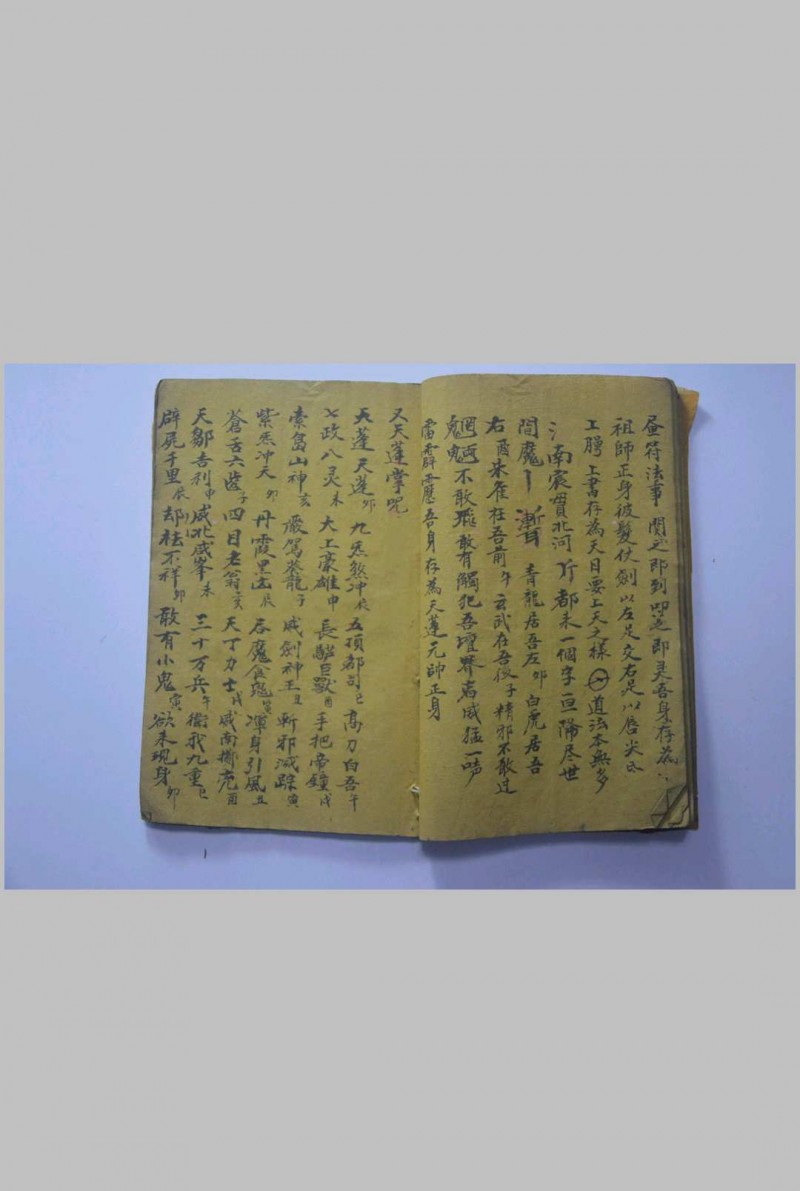 符法事 閞之即到 之即灵吾身存為
祖師正身被髮仗劍以左足交右足以唇尖
工腭上書存為天目要上天之樣 道法本無多
南宸貫北河 都来一個字 亘歸尽世
閻魔 漸耳 青龍居吾左卯 白虎居吾
右酉朱雀在吾前午玄武在吾後子精邪不敢过
魍魎不敢 敢有觸犯吾壇界 威猛一
霹靂吾身存為天蓬元帥正身
又天蓬掌呪
天蓬天蓬卯 九炁煞冲辰 五項都司巳 高刀白吾午
七政八灵未 大上豪雄申 長驢巨獸酉 手把帝鐘戌
素梟山神亥 嚴駕夔龍子 威劍神王丑 斬邪滅踪寅
紫炁冲天卯 丹霞黑 辰 吞魔食鬼 渾身引風丑
蒼舌六齒子 四目老翁亥 天丁力士戌 威南 兇酉
天騶吉利申 威北 峯未 三十万兵午 衛我九重巳
辟尸千里辰 却祛不祥卯 敢有小鬼寅 欲来現身卯